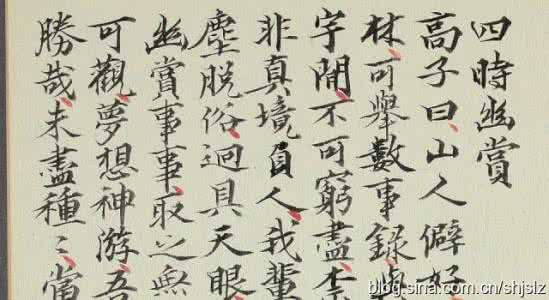 四時幽賞
高子曰、山人癖好
林、可舉數事錄
宇間、不可窮盡、
非真境負人、我輩
塵脫俗、迥具天眼
幽賞事事、取之無
可觀、夢想神游、吾
勝哉、未盡種〻、當
blog.sina.com.cn/shjslz